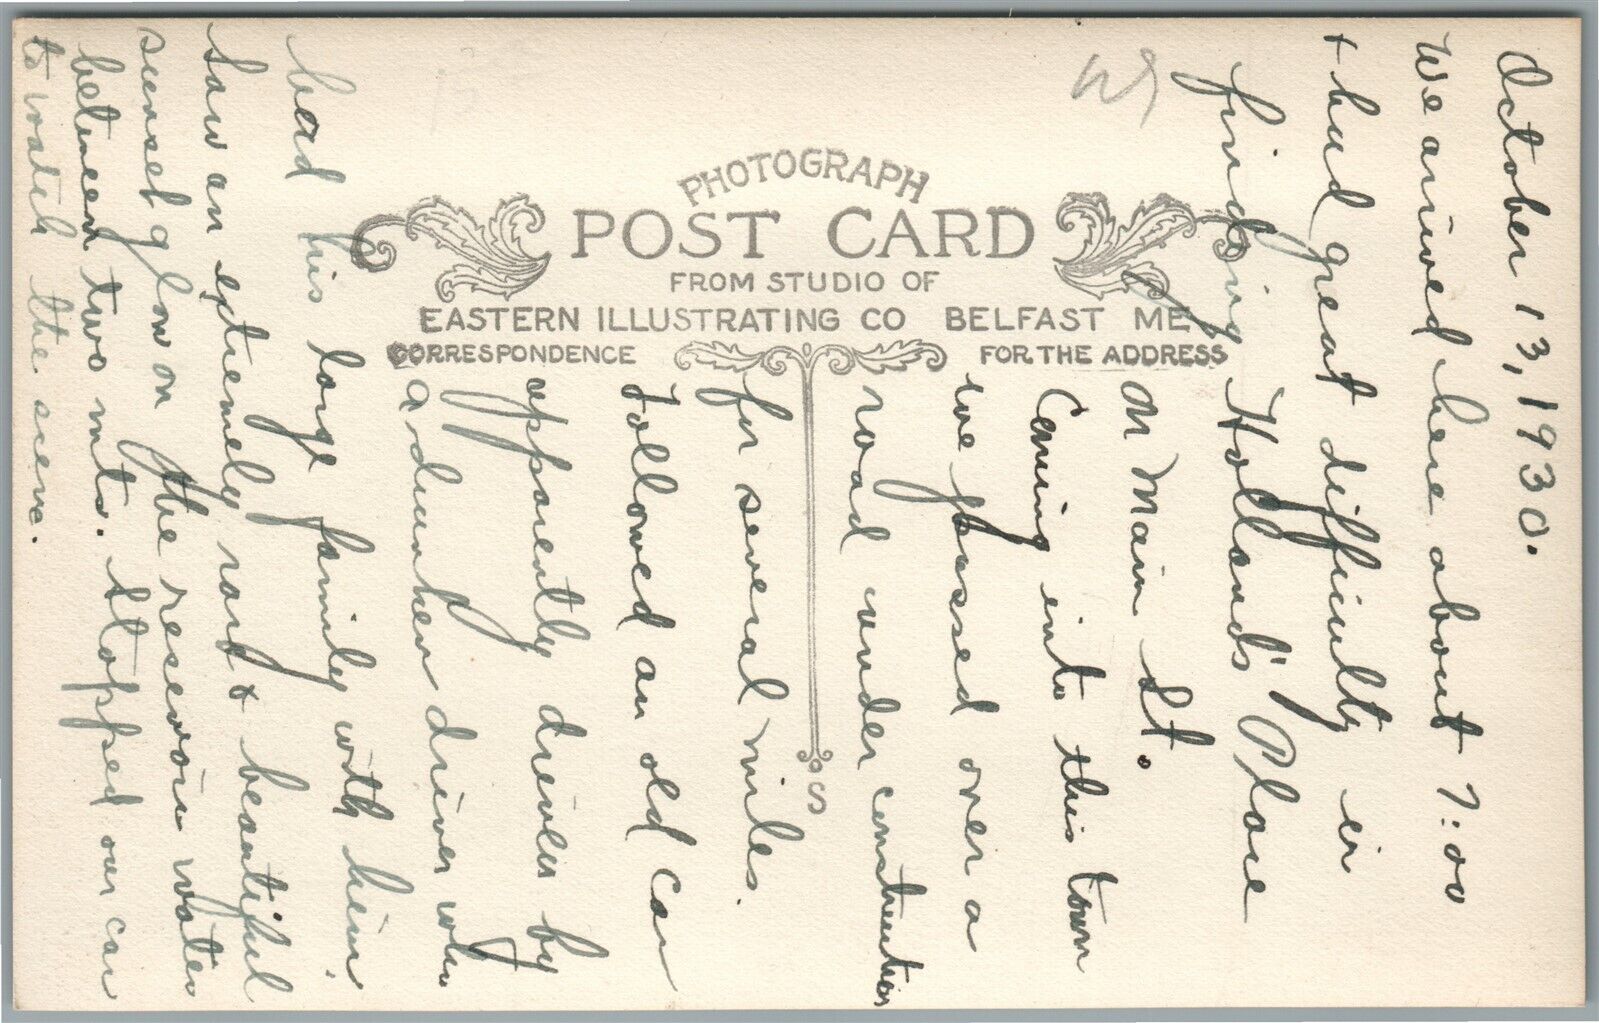 October 13, 1930.
We arrived here about 7:00
+ had great difficulty in
finding Holland's Place
on Main St.
Coming into this town
we passed over a
road under construction
for several miles.
Followed an old car
apparently driven by
a drunken driver who
had his large family with him.
Saw an extremely rare + beautiful
sunset glow on the reservoir water
between two mts. Stopped our car
to watch the scene.
PHOTOGRAPH
POST CARD
FROM STUDIO OF
EASTERN ILLUSTRATING CO BELFAST ME
CORRESPONDENCE FOR THE ADDRESS
S